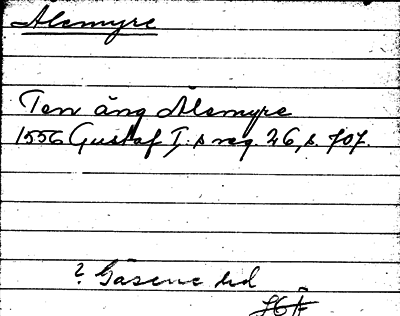 Alemyre
Ten äng Alemyre
1556 Gustaf I:s reg. 26, s. 707.
? Gäsene hd